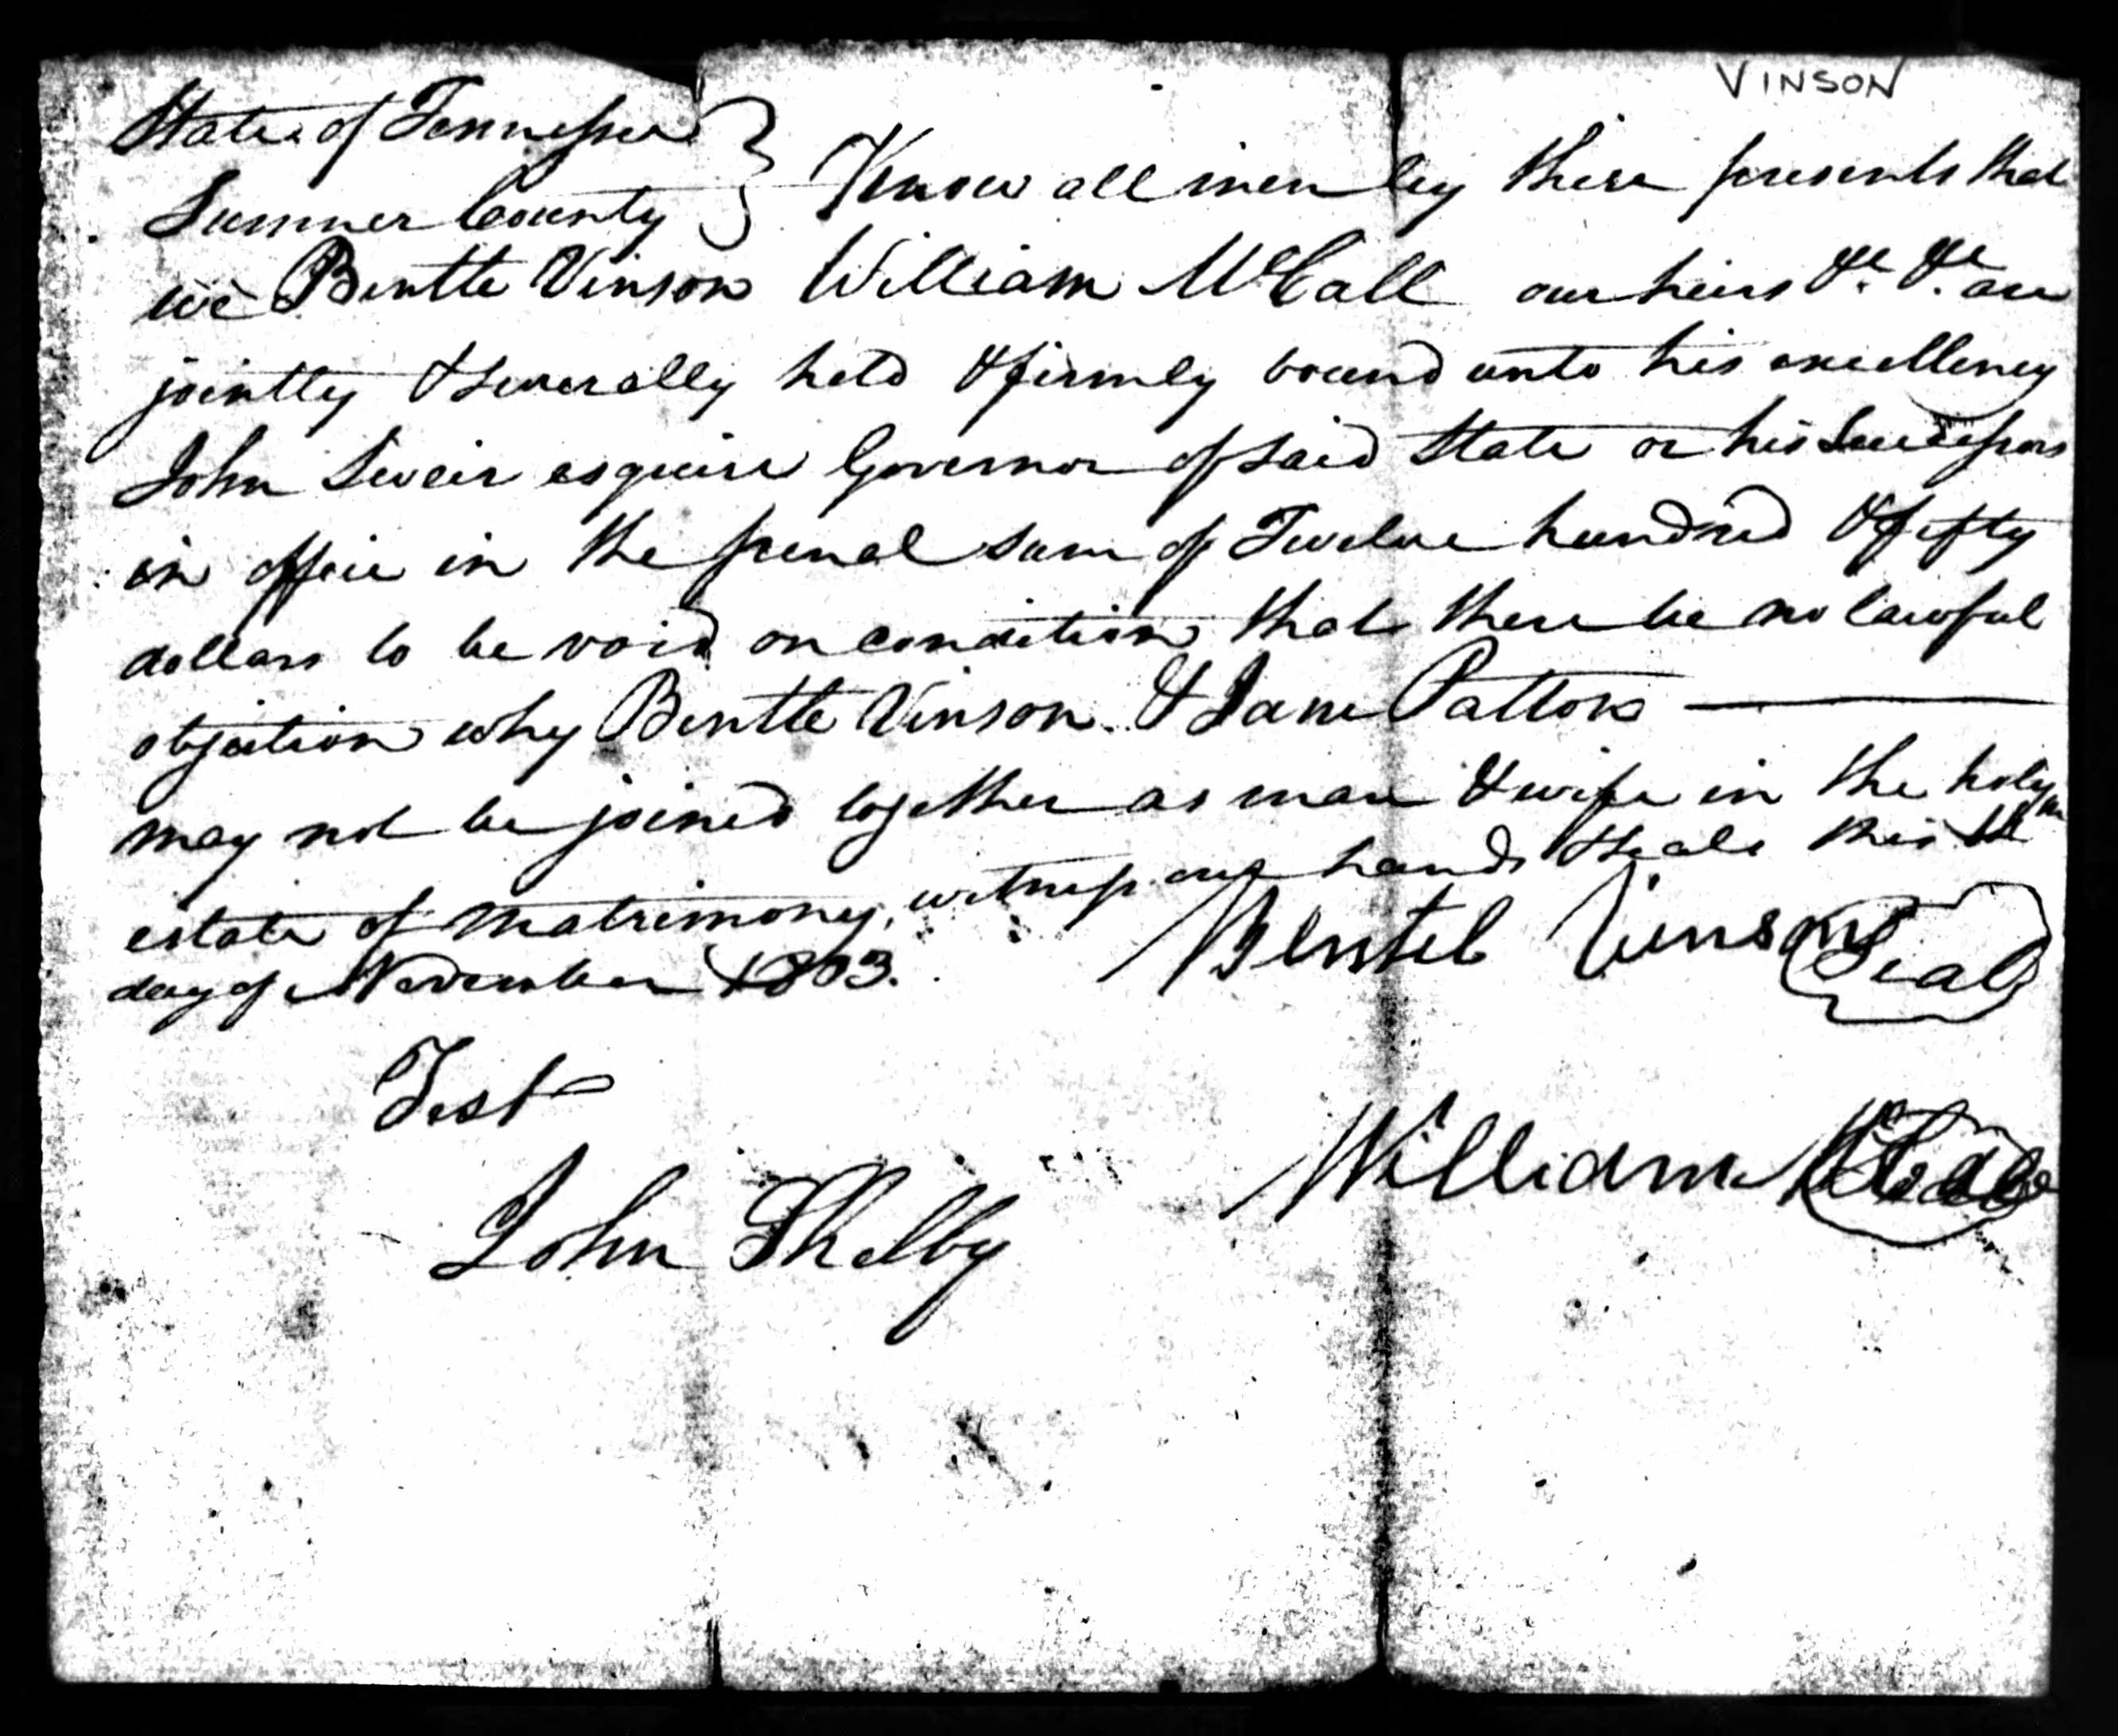 VINSON
State of Tennessee
Sumner County } Know all men by these presents that
we Bentle Vinson William McCall our heirs &c. &c. are
jointly & severally held & firmly bound unto his excellency
John Sevier esquire Governor of said State or his Successors
in office in the penal sum of Twelve hundred & fifty
dollars to be void on condition that there be no lawful
objection why Bentle Vinson & Jane Patton
may not be joined together as man & wife in the holy
estate of matrimony, witness our hands & seals this
day of November 1803.
Bentel Vinson Seal
Test
William McCall Seal
John Shelby